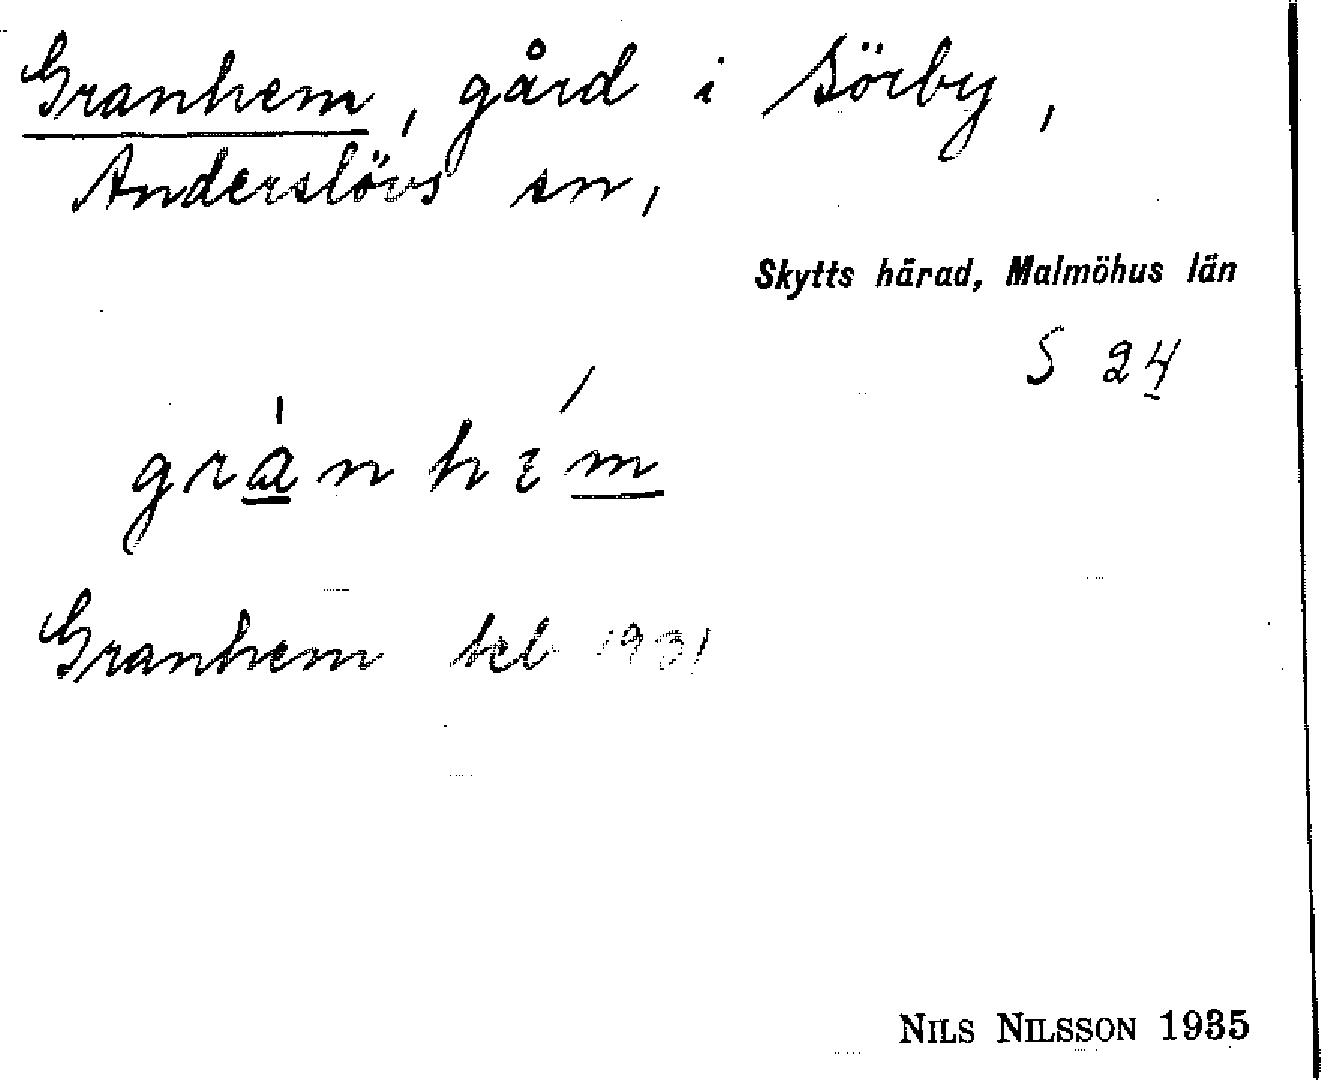 Granhem, gård i Sörby,
Anderslövs sn,
Skytts härad, Malmöhus län
S 24
granhem
Granhem tel 1931
NILS NILSSON 1935